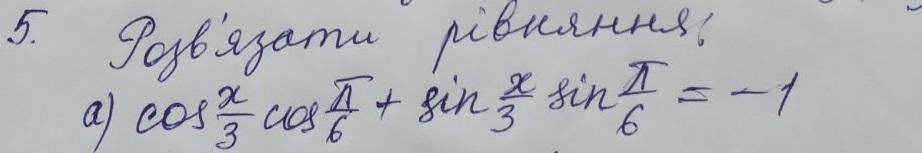 5. Розв'язати рівняння:
а) cos x/3 cos π/6 + sin x/3 sin π/6 = -1